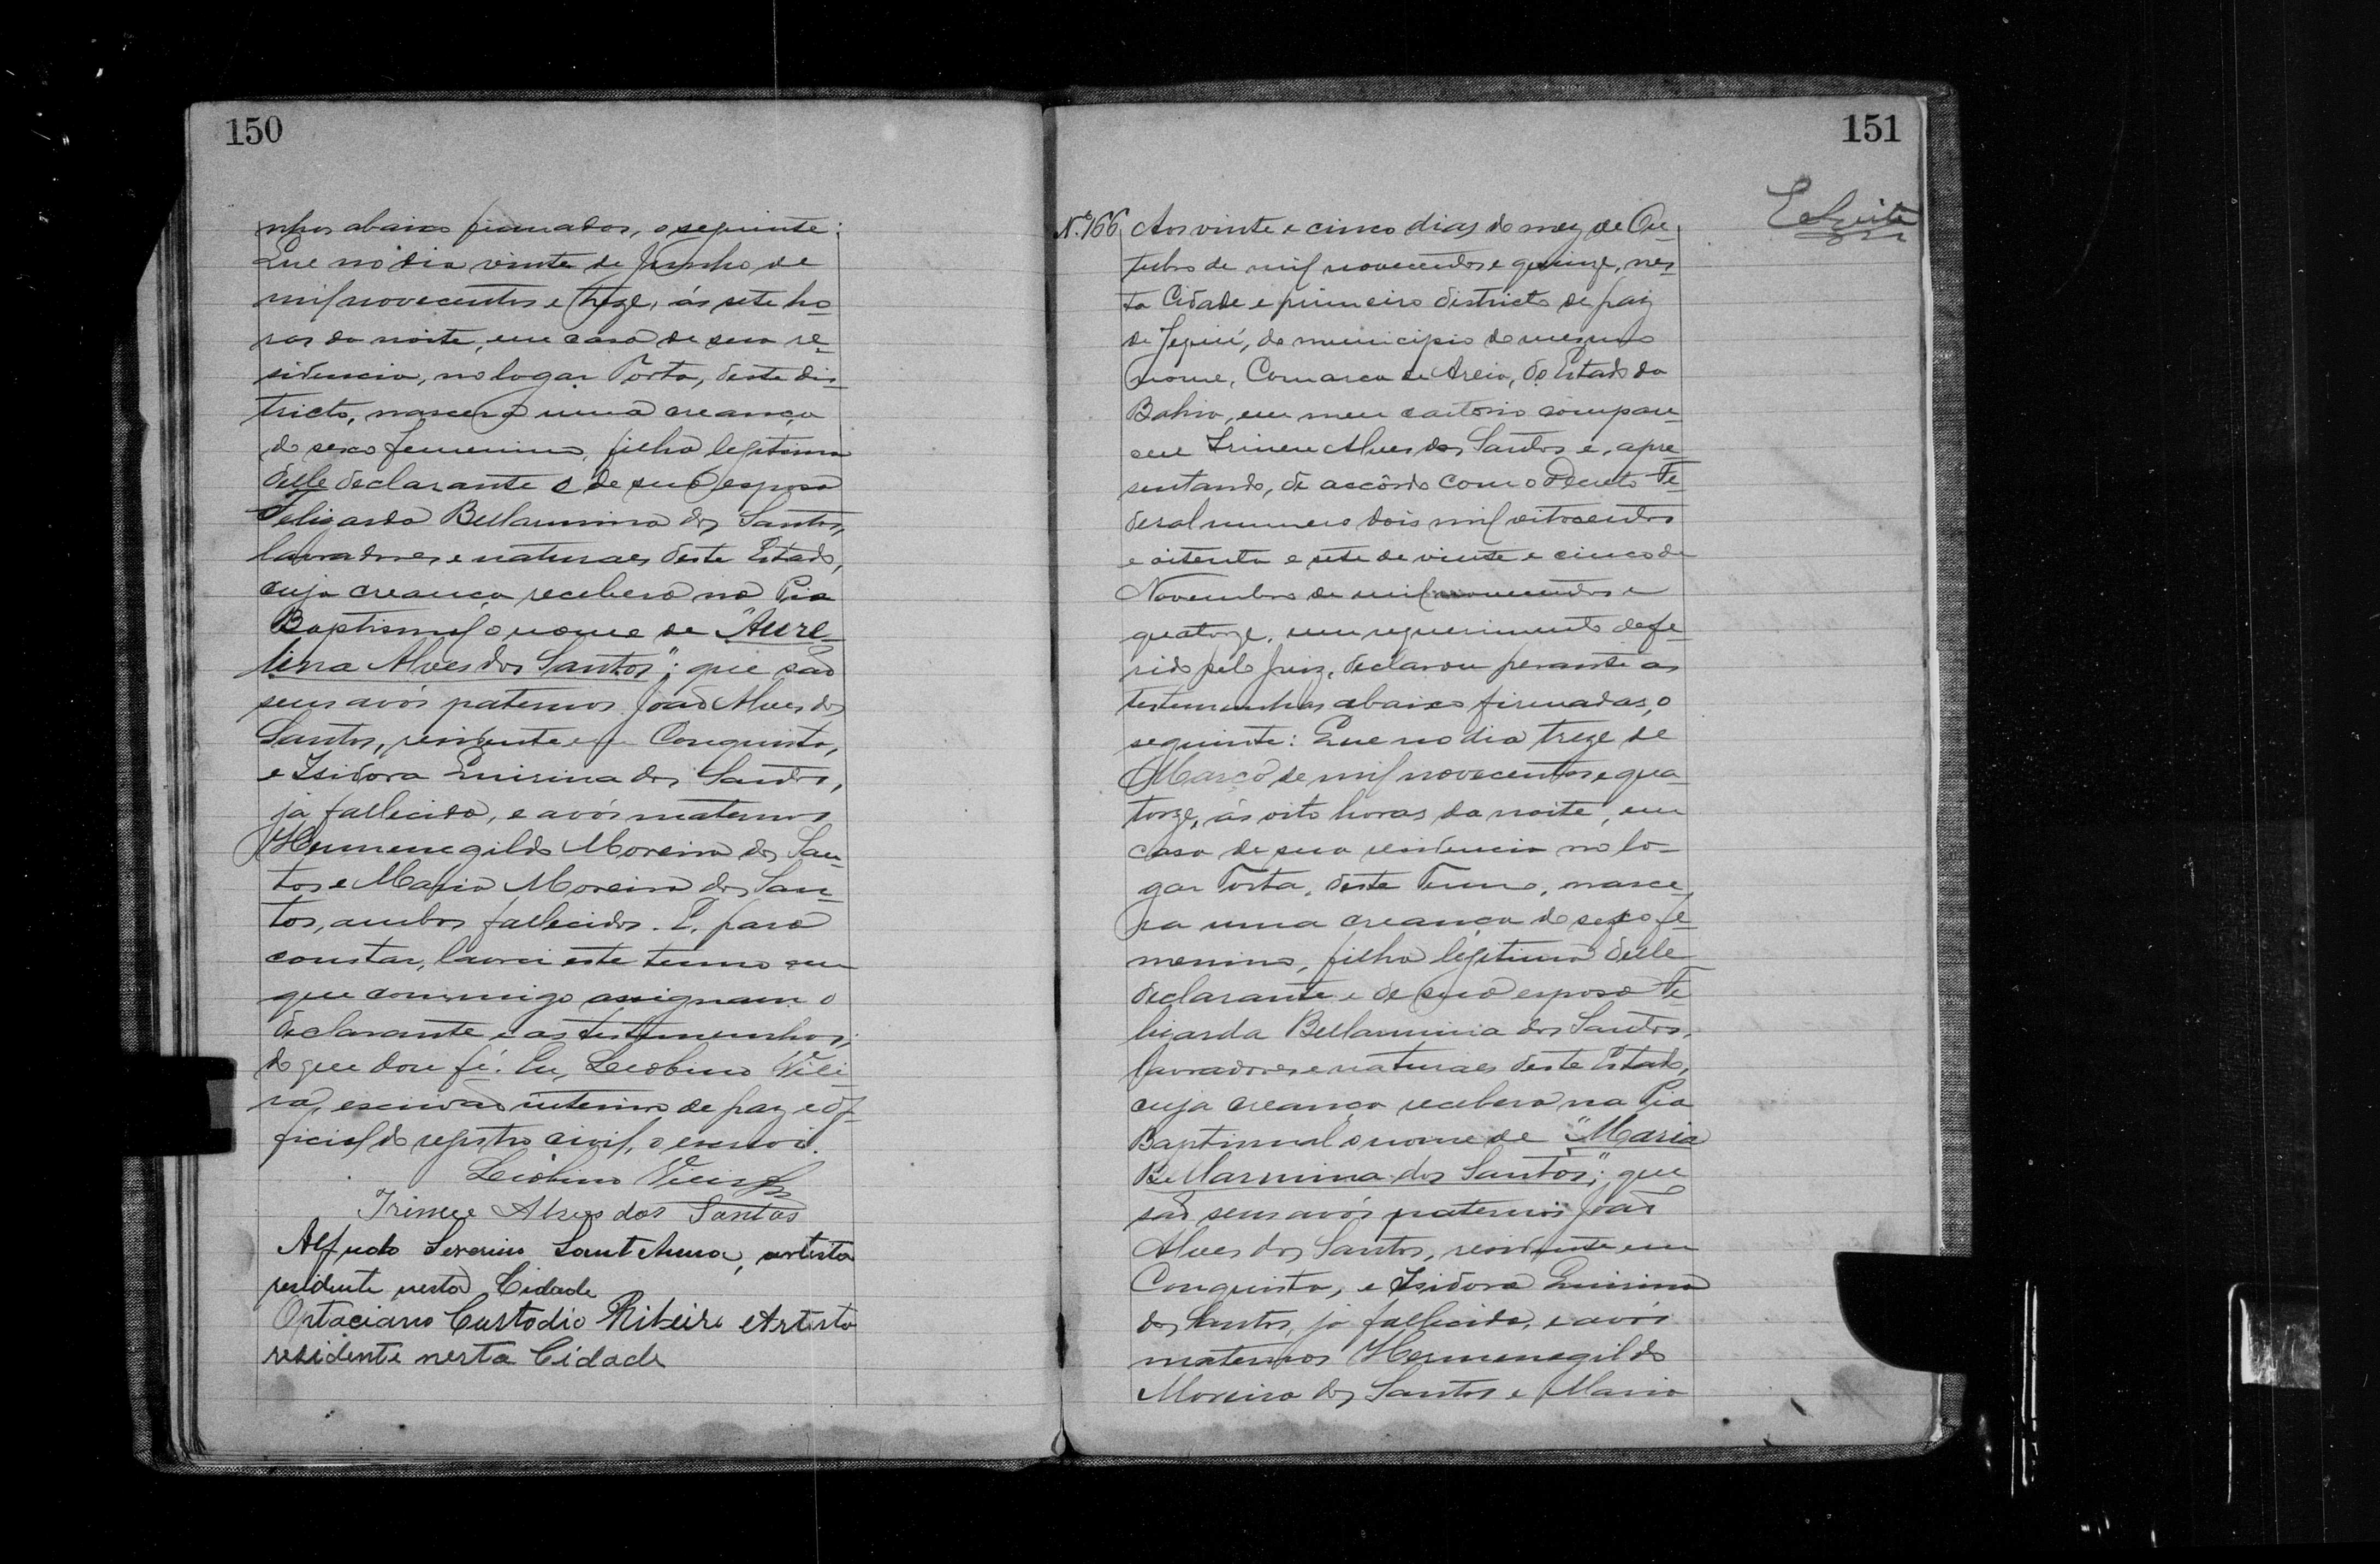 150
nhas abaixo firmadas, o seguinte:
Que no dia vinte de Junho de
mil novecentos e treze, ás sete ho-
ras da noite, em casa de sua re-
sidencia, no logar Torta, deste dis-
tricto, nascera uma creança
do sexo femenino, filha legitima
delle declarante e de sua esposa
Feligarda Bellarmina dos Santos,
lavradores e naturaes deste Estado,
cuja creança receberá na Pia
Baptismal o nome de "Aure-
lina Alves dos Santos"; que são
seus avós paternos João Alves dos
Santos, residente em Conquista,
e Isidora Quirina dos Santos,
já fallecida, e avós maternos
Hermenegildo Moreira dos San-
tos e Maria Moreira dos San-
tos, ambos fallecidos. E, para
constar, lavrei este termo em
que commigo assignam o
declarante e as testemunhas;
do que dou fé. Eu, Leobino Viei-
ra, escrivão interino de paz e of-
ficial do registro civil, o escrevi.
Leobino Vieira
Irineu Alves dos Santos
Alfredo Severino Sant'Anna, artista
residente nesta Cidade
Optaciano Custodio Ribeiro Artista
residente nesta Cidade
151
N.º 166 Aos vinte e cinco dias do mez de Ou-
tubro de mil novecentos e quinze, nes-
ta Cidade e primeiro districto de paz
de Jequié, do municipio do mesmo
nome, Comarca de Areia, do Estado da
Bahia, em meu cartorio compare-
ceu Irineu Alves dos Santos e, apre-
sentando, de accôrdo com o Decreto Fe-
deral numero dois mil oitocentos
e oitenta e sete de vinte e cinco de
Novembro de mil novecentos e
quatorze, um requerimento defe-
rido pelo Juiz, declarou perante as
testemunhas abaixo firmadas, o
seguinte: Que no dia treze de
Março de mil novecentos e qua-
torze, ás oito horas da noite, em
casa de sua residencia no lo-
gar Torta, deste Termo, nasce-
ra uma creança do sexo fe-
menino, filha legitima delle
declarante e de sua esposa Fe-
licarda Bellarmina dos Santos,
lavradores e naturaes deste Estado,
cuja creança receberá na Pia
Baptismal o nome de "Maria
Bellarmina dos Santos"; que
são seus avós paternos João
Alves dos Santos, residente em
Conquista, e Isidora Quirina
dos Santos, já fallecida, e avós
maternos Hermenegildo
Moreira dos Santos e Maria